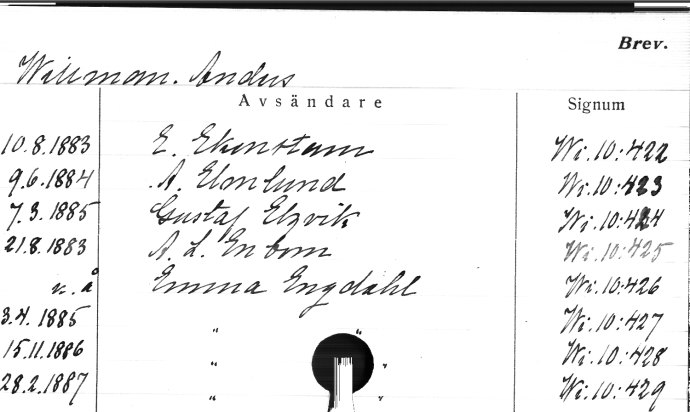 Brev.
Willman. Anders
Avsändare Signum
10.8.1883 E. Ekenstam Wi.10:422
9.6.1884 A. Elmlund Wi.10:423
7.3.1885 Gustaf Elgvik Wi.10:424
21.8.1883 A. L. Enbom Wi.10:425
u. å Emma Engdahl Wi.10:426
3.4.1885 " " Wi.10:427
15.11.1886 " " Wi.10:428
28.2.1887 " " Wi.10:429